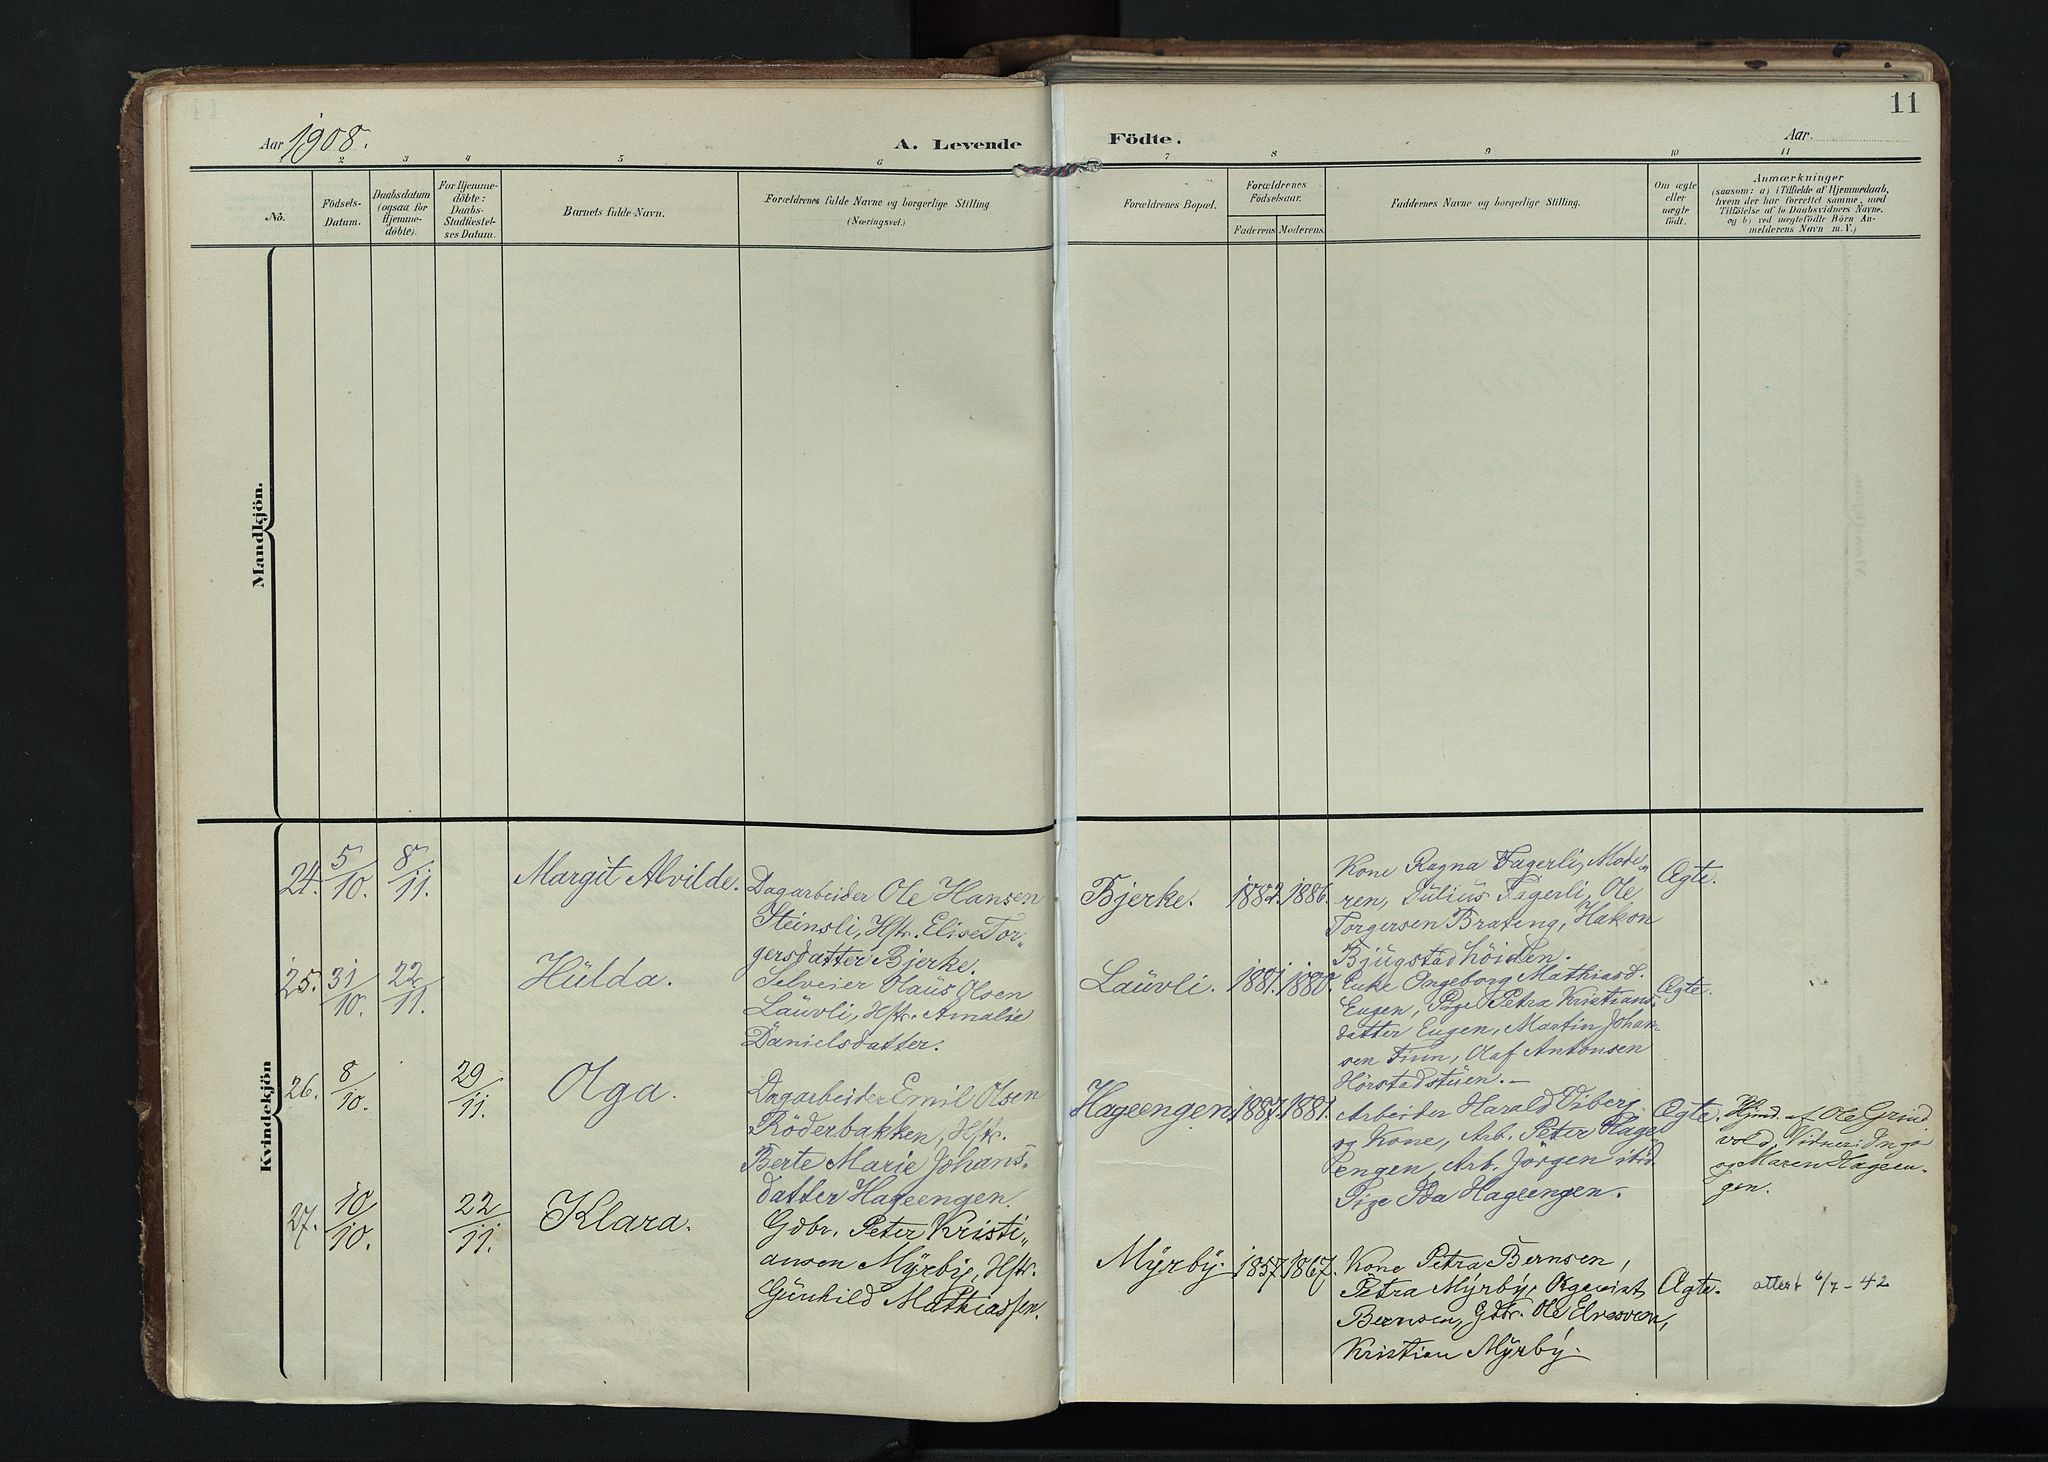 11
Aar 1908.
A. Levende
Födte.
Aar.
2 3 4 5 6 7 8 9 10 11
No.
Födsels-
Datum.
Daabsdatum
(ogsaa for
Hjemme-
döbte).
For Hjemme-
döbte:
Daabs-
Stadfæstel-
ses Datum.
Barnets fulde Navn.
Forældrenes fulde Navne og borgerlige Stilling
(Næringsvei.)
Forældrenes Bopæl.
Forældrenes
Födselsaar.
Faderens. Moderens.
Faddernes Navne og borgerlige Stilling.
Om ægte
eller
uægte
født.
Anmærkninger
(saasom: a) i Tilfælde af Hjemmedaab,
hvem der har forrettet samme, med
Tilföielse af to Daabsvidners Navne.
og b) ved uægtefödte Börn An-
melderens Navn m. V.)
Mandkjön.
Kvindekjön
24. 5/10. 8/11. Margit Alvilde.
Dagarbeider Ole Hansen
Steinsli, Hstr. Elise Tor-
gersdatter Bjerke.
Bjerke. 1882. 1886.
Kone Ragna Fagerli, Mode-
ren, Julius Fagerli, Ole
Torgersen Brateng, Hakon
Bjugstadhöiden.
Ægte.
25. 31/10. 22/11. Hulda.
Selveier Olaus Olsen
Lauvli, Hstr. Amalie
Danielsdatter.
Lauvli. 1881. 1880.
Enke Ingeborg Mathiasd.
Eugen, Pige Petra Kristians-
datter Eugen, Martin Johan-
sen Finn, Olaf Antonsen
Hörstadstuen.
Ægte.
26. 8/10. 29/11. Olga.
Dagarbeider Emil Olsen
Röderbakken, Hstr.
Berte Marie Johans-
datter Hageengen.
Hageengen. 1887. 1881.
Arbeider Harald Viberg
og Kone, Arb. Peter Hage-
engen, Arb. Jörgen ibid.
Pige Ida Hageengen.
Ægte.
Hjmd. af Ole Grind-
vold, Vidner: Inga
og Maren Hageen-
gen.
27. 10/10. 22/11. Klara.
Gdbr. Peter Kristi-
ansen Myrby, Hstr.
Gunhild Mathiassen.
Myrby. 1857. 1867.
Kone Petra Bernsen,
Petra Myrby,
Bernsen, Gdbr. Ole Elvesveen,
Kristian Myrby.
Ægte.
attert 6/7-42